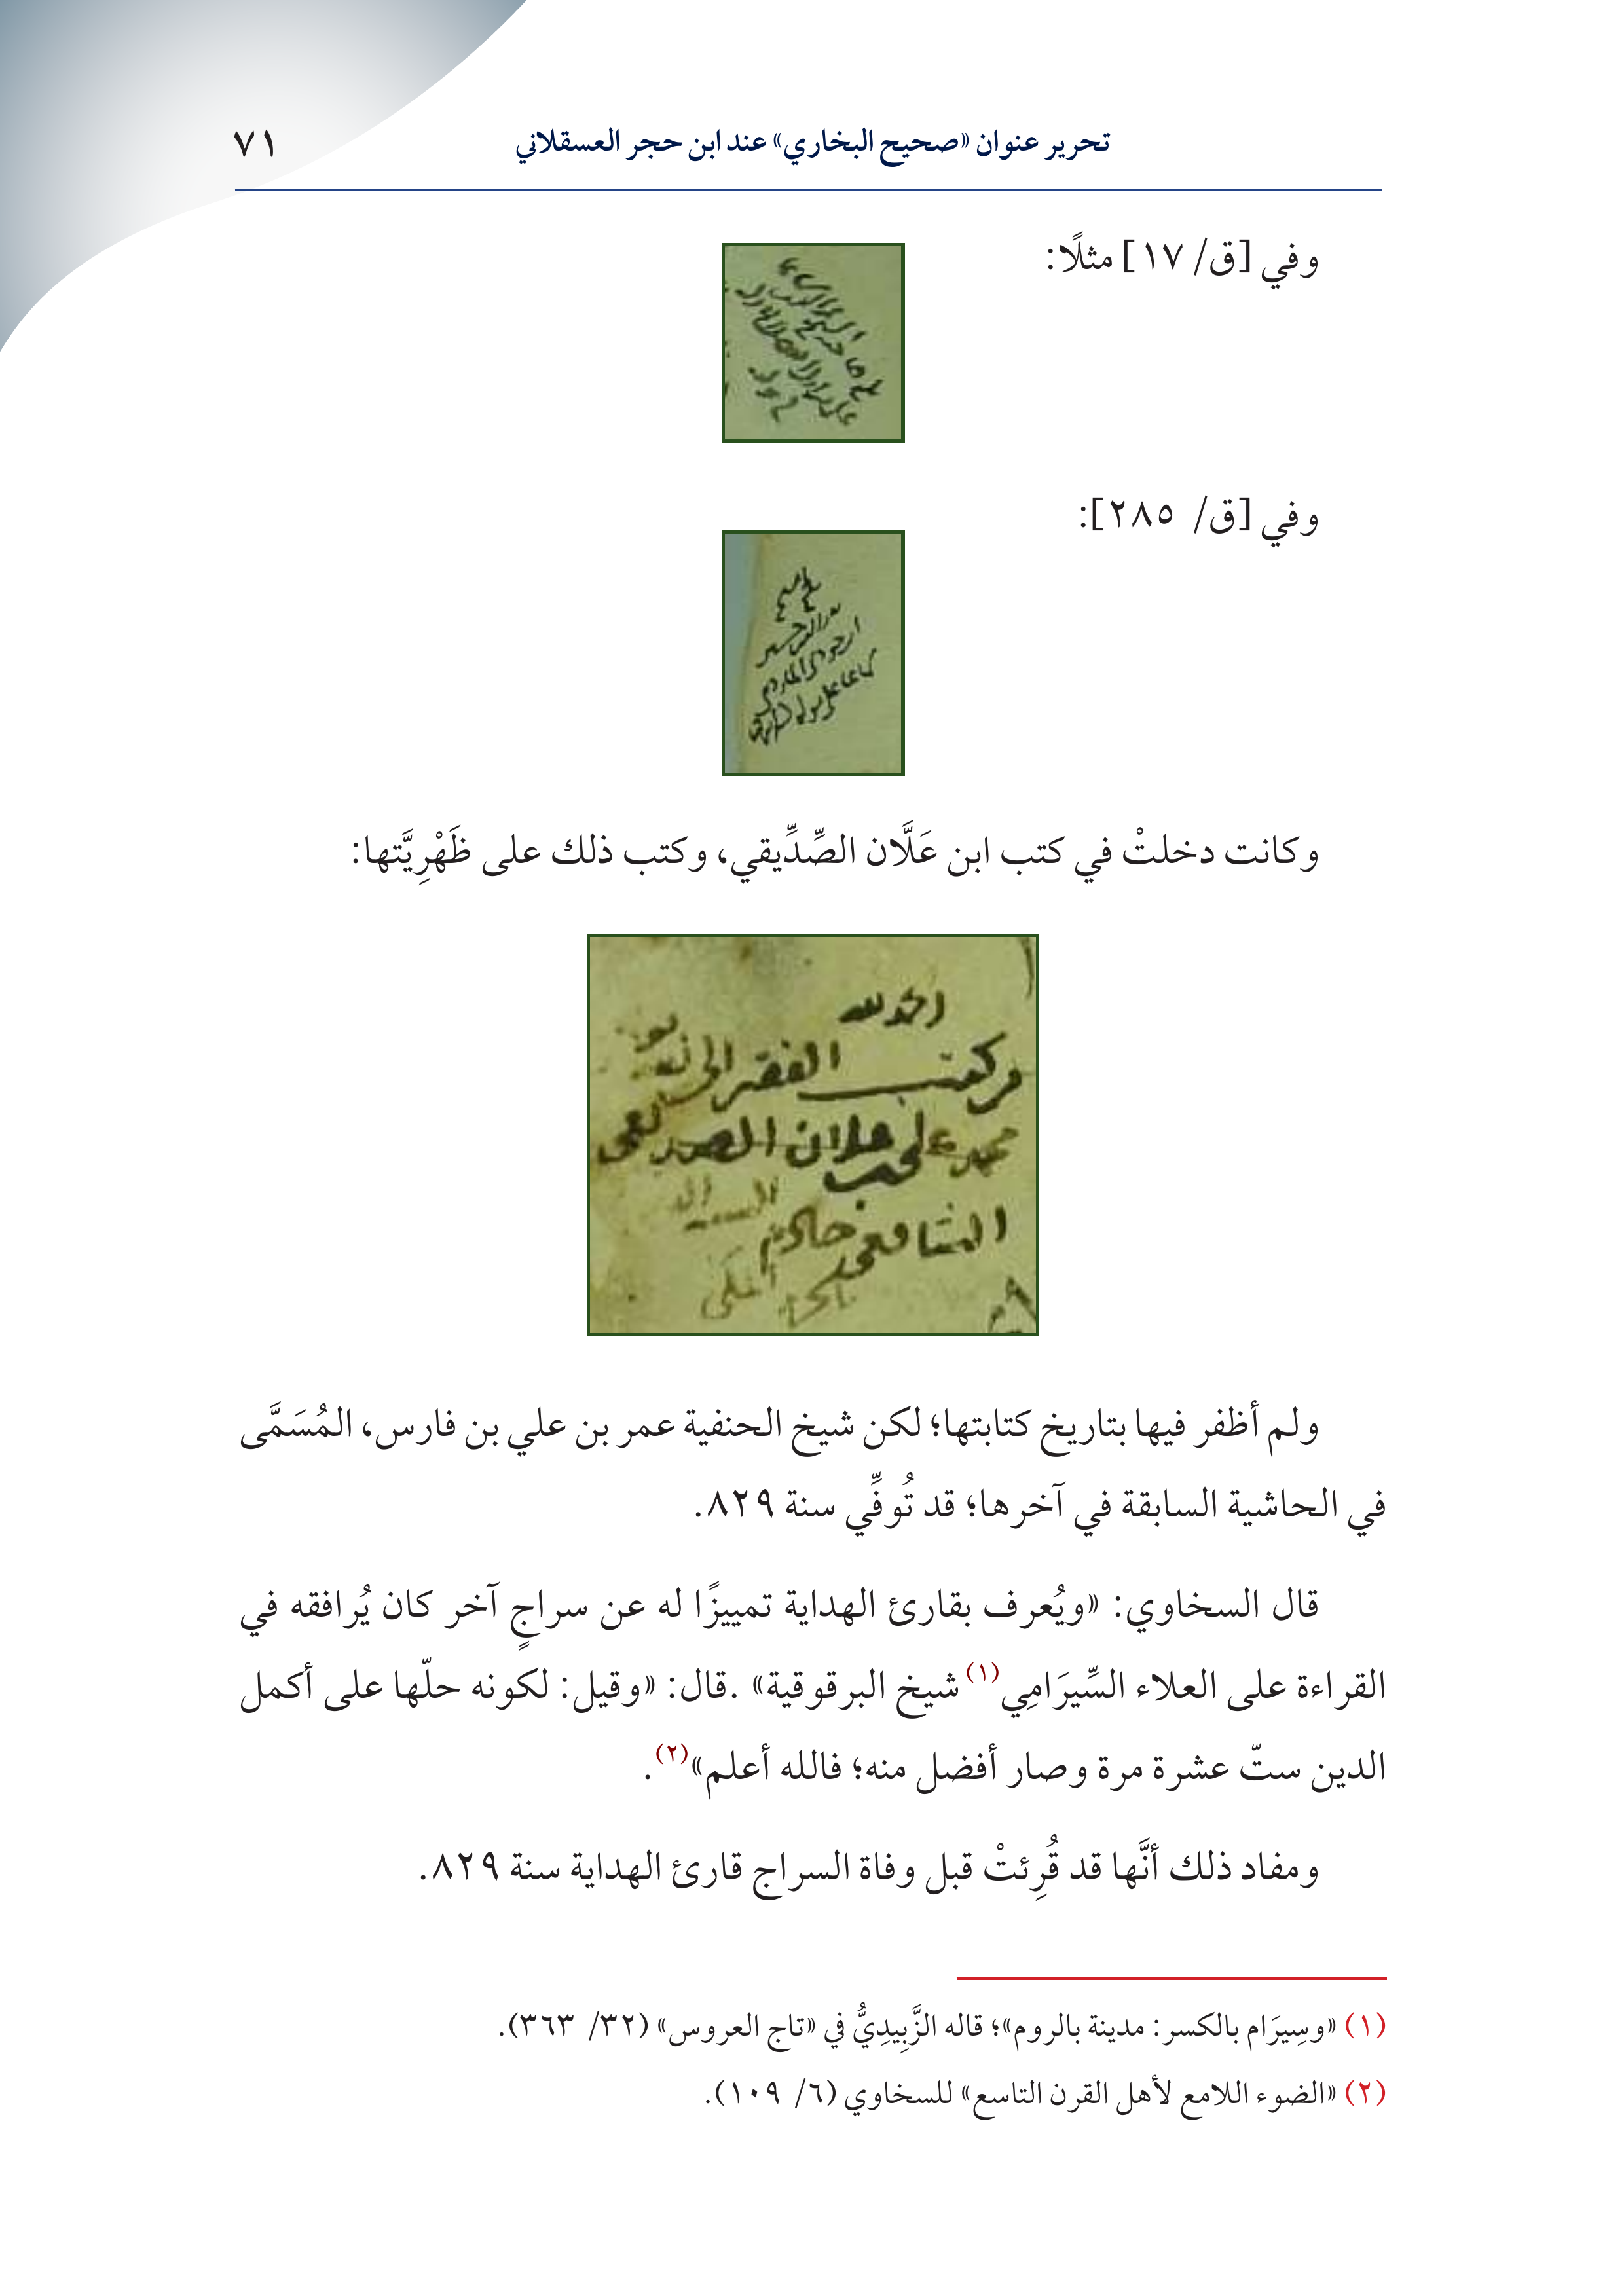 تحرير عنوان «صحيح البخاري» عند ابن حجر العسقلاني
٧١
وفي [ق/ ١٧] مثلًا:
وفي [ق/ ٢٨٥]:
وكانت دخلتْ في كتب ابن عَلَّان الصِّدِّيقي، وكتب ذلك على ظَهْرِيَّتها:
الحمد لله
من كتب الفقير الى
محمد علي علان الصديقي
الشافعي خادم
ولم أظفر فيها بتاريخ كتابتها؛ لكن شيخ الحنفية عمر بن علي بن فارس، المُسَمَّى
في الحاشية السابقة في آخرها؛ قد تُوفِّي سنة ٨٢٩.
قال السخاوي: «ويُعرف بقارئ الهداية تمييزًا له عن سراجٍ آخر كان يُرافقه في
القراءة على العلاء السِّيرَامِي(١) شيخ البرقوقية» .قال: «وقيل: لكونه حلّها على أكمل
الدين ستّ عشرة مرة وصار أفضل منه؛ فالله أعلم»(٢).
ومفاد ذلك أنَّها قد قُرِئتْ قبل وفاة السراج قارئ الهداية سنة ٨٢٩.
(١) «وسِيرَام بالكسر: مدينة بالروم»؛ قاله الزَّبِيدِيُّ في «تاج العروس» (٣٢/ ٣٦٣).
(٢) «الضوء اللامع لأهل القرن التاسع» للسخاوي (٦/ ١٠٩).